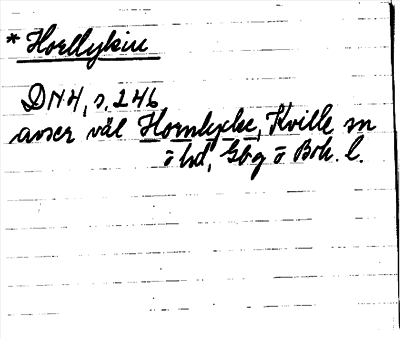 * Hoellykiu
DN 4, s. 246
avser väl Hornlycke, Kville sn
o hd, Gbg o Boh. l.